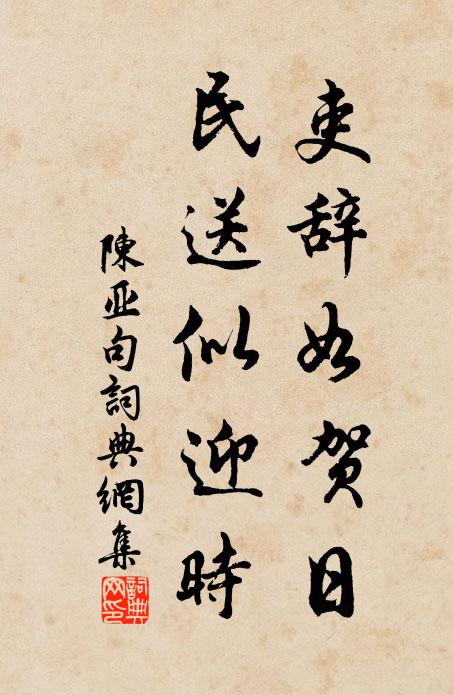 吏辞如贺日
民送似迎時
陳亚句詞典網集
詞典网印